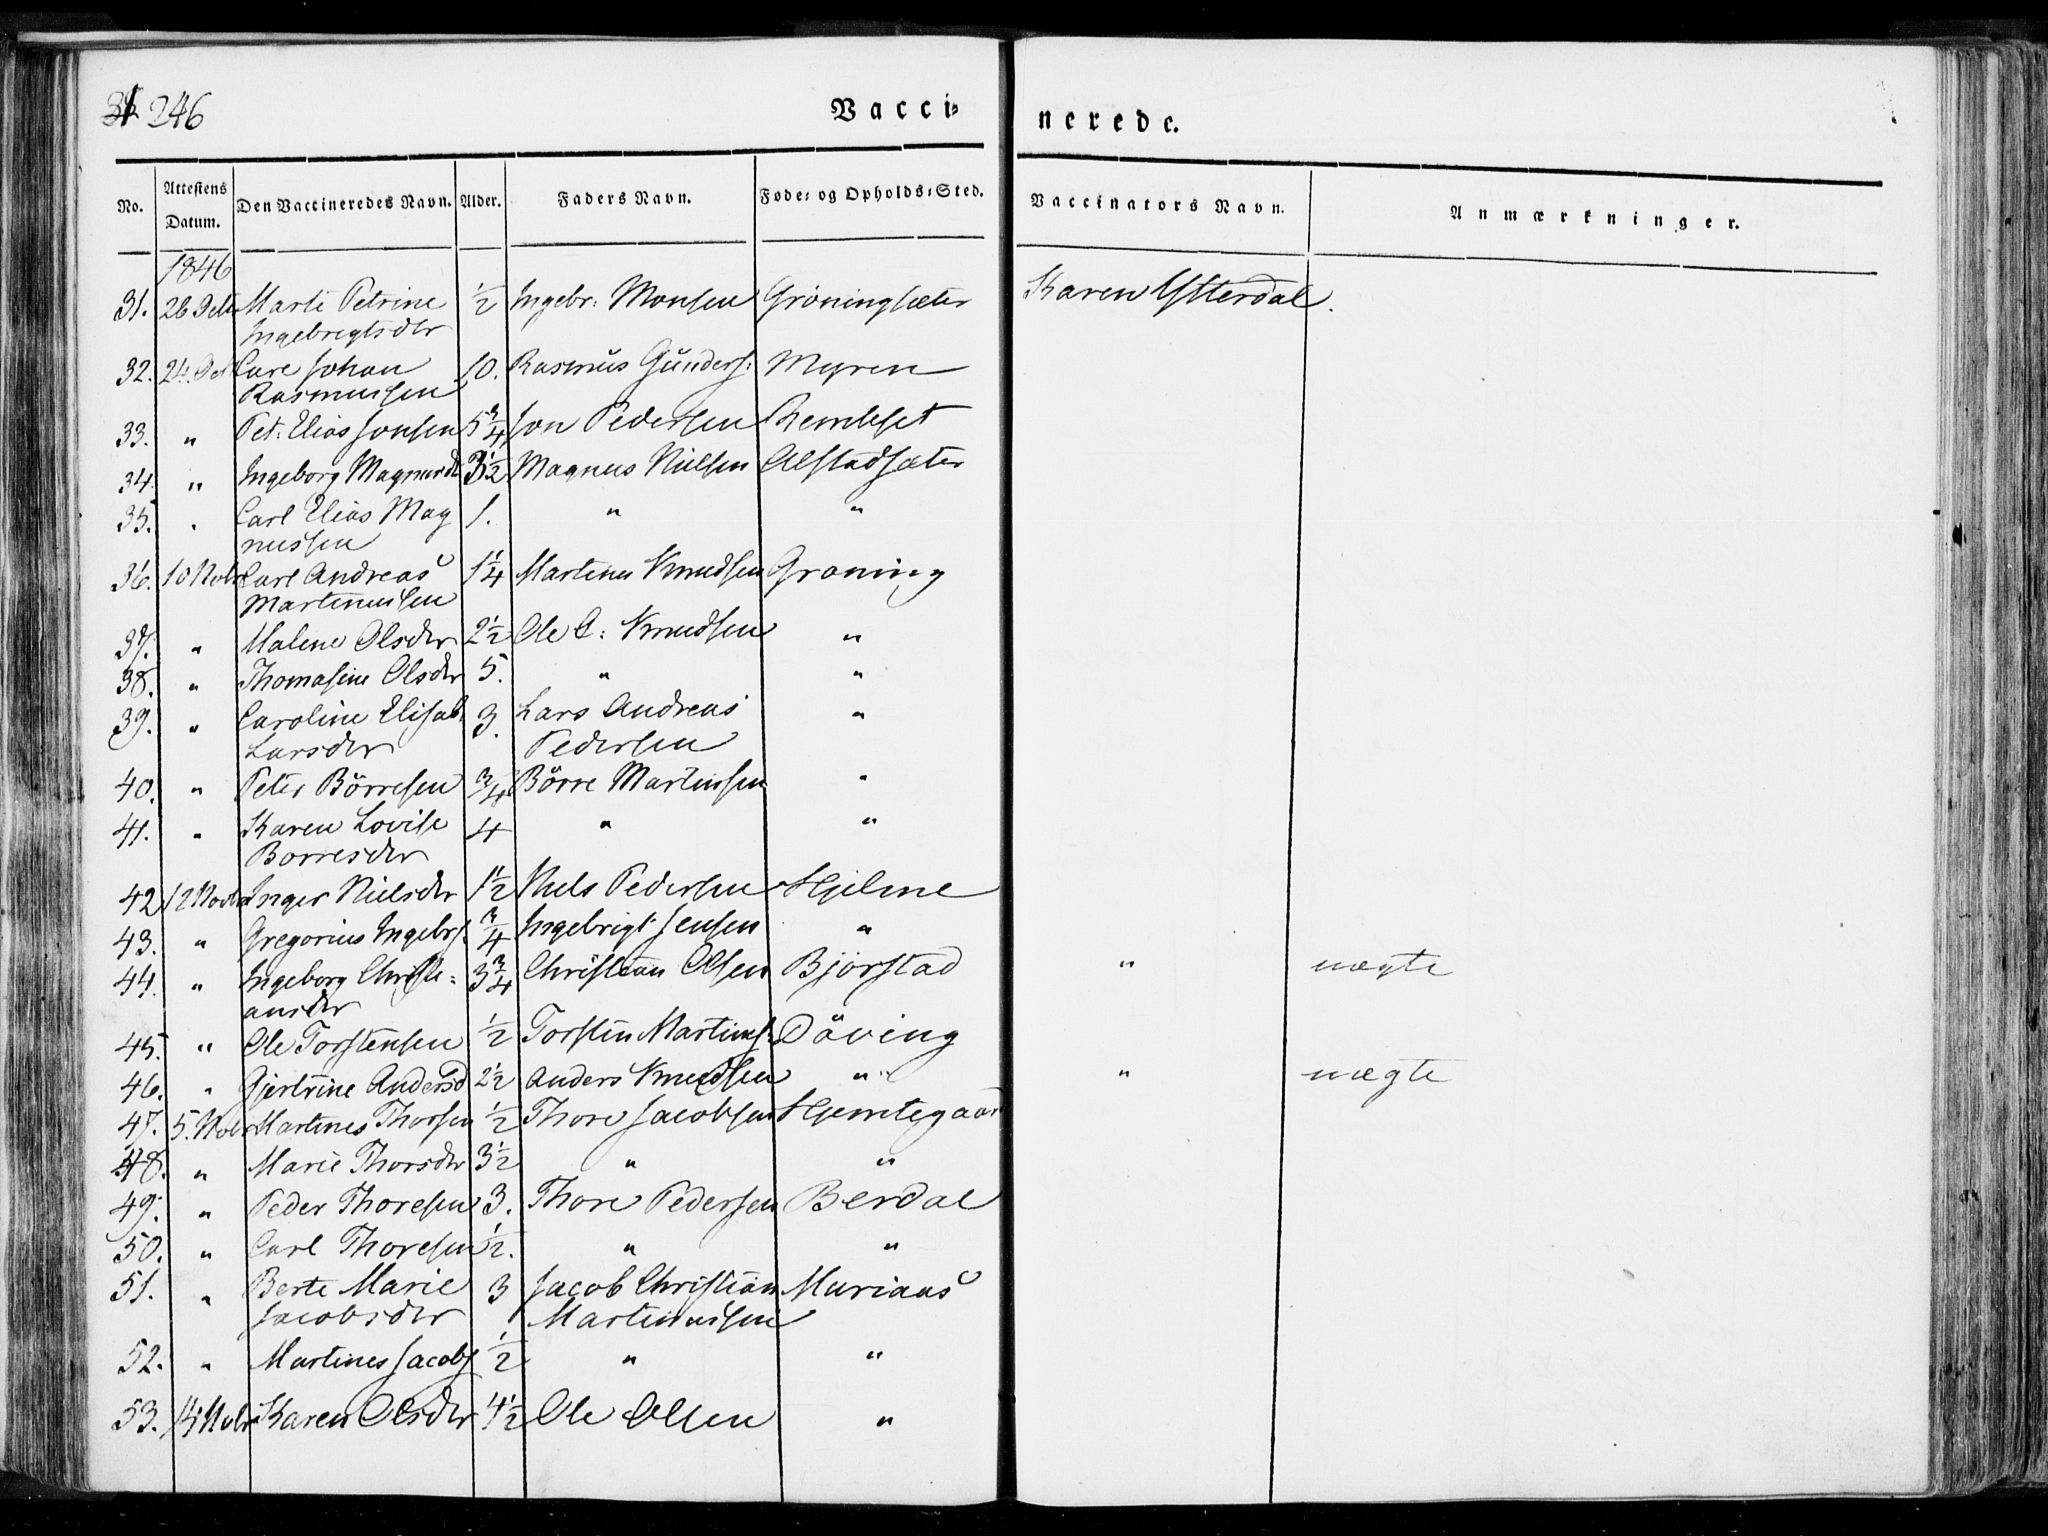 246
Vacci=
nerede.
No. Attestens Datum. Den Vaccineredes Navn. Alder. Faders Navn. Føde= og Opholds=Sted. Vaccinators Navn. Anmærkninger.
1846
31. 28 Octr Marte Petrine ½ Ingebr: Monsen Gröningsæter Karen Ytterdal.
Ingebregtsdtr
32. 24. Oct Carl Johan 10. Rasmus Gunders: Myren
Rasmussen
33. " Pet: Elias Jonsen 5¾ Jon Pedersen
34. " Ingeborg Magnusdt 3½ Magnus Nielsen Alstadsæter
35. " Carl Elias Mag 1. " "
nussen
36. 10 Novbr Carl Andreas 1¼ Martinus Knudsen Groning
Martinussen
37. " Malene Olsdtr 2½ Ole A: Knudsen "
38. " Thomasine Olsdtr 5. " "
39. " Caroline Elisab. 3. Lars Andreas "
Larsdtr Pedersen
40. " Peter Börresen ¾ Börre Martinsen "
41. " Karen Lovise 4 " "
Borresdtr
42 12 Novbr Inger Nielsdtr 1½ Niels Pedersen Hjelme
43. " Gregorius Ingebrs. ¾ Ingebrigt Jensen "
44. " Ingeborg Christi= 3¾ Christian Olsen Bjorstad " nægte
ansdtr
45. " Ole Torstensen ½ Torstin Martinus: Döving
46. " Gjertrine Andersd 2½ Anders Knudsen " " nægte
47. 5. Nobr Martines Thorsen ½ Thore Jacobsen Hjemtegaar
48. " Marie Thorsdtr 3½ " "
49. " Peder Thoresen 3. Thore Pedersen Berdal
50. " Carl Thoresen ½. " "
51. " Berte Marie 3 Jacob Christian Muriaas
Jacobsdtr Martinussen
52. " Martines Jacobs ½ " "
53. 14 Nobr Karen Olsdtr 4½ Ole Olsen "